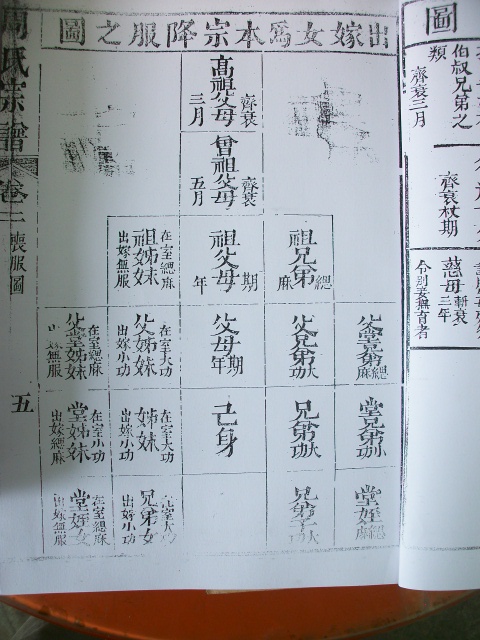 圖
伯叔兄弟之
類
齊衰三月
齊衰杖期
慈母斬衰三年
令別妾撫育者
出嫁女為本宗降服之圖
高祖父母 齊衰三月
曾祖父母 齊衰五月
祖兄弟 緦麻
祖父母 期年
祖姊妹 在室緦麻 出嫁無服
父堂兄弟 緦麻
父兄弟 大功
父母 期年
父姊妹 在室大功 出嫁小功
父堂姊妹 在室緦麻 出嫁無服
堂兄弟 小功
兄弟 大功
己身
姊妹 在室大功 出嫁小功
堂姊妹 在室小功 出嫁緦麻
堂姪 緦麻
兄弟子 大功
兄弟女 在室大功 出嫁小功
堂姪女 在室緦麻 出嫁無服
周氏宗譜
卷一
喪服圖
五